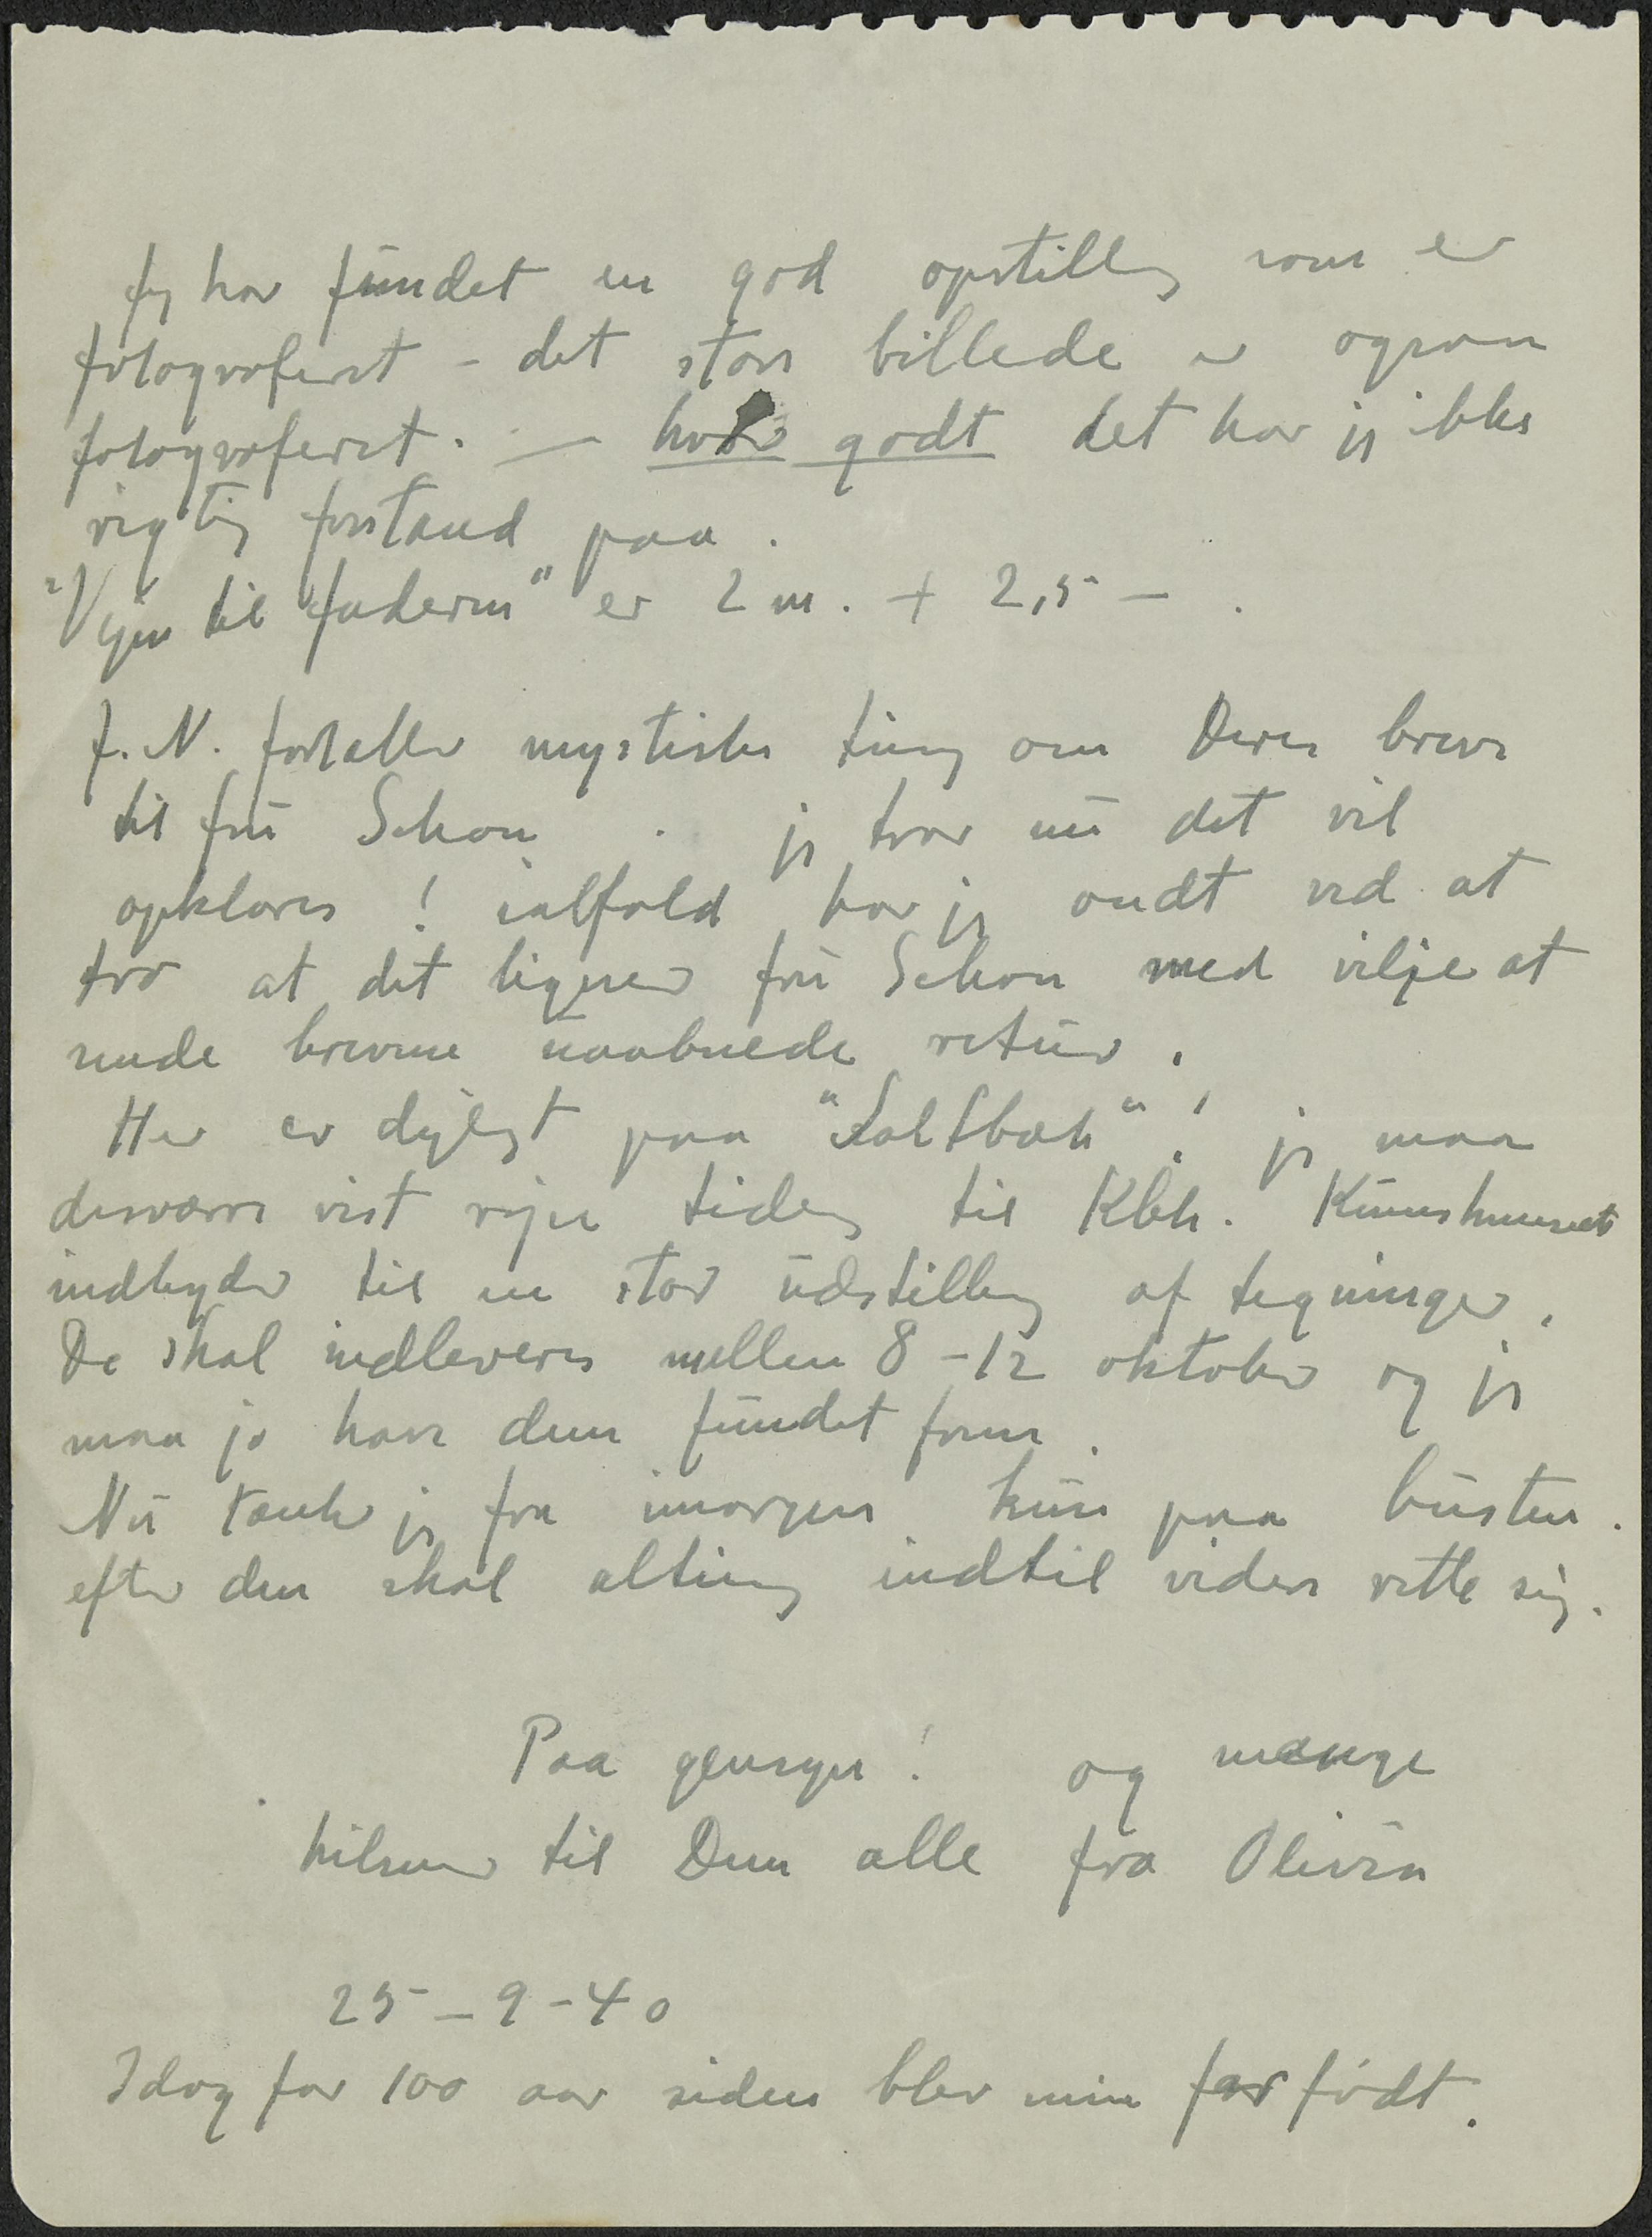 Jeg har fundet en god opstilling som er
fotograferet - det store billede er ogsaa
fotograferet. — hvor godt det har jeg ikke
rigtig forstand paa.
"Vejen til faderen" er 2 m. + 2,5 — .
J. N. fortæller mystiske ting om Deres breve
til fru Schou . jeg tror nu det vil
opklares ! ialfald har jeg ondt ved at
tro at det ligner fru Schou med vilje at
sende brevene uaabnede retur.
Her er dejligt paa "Saltbæk" ! jeg maa
desværre vist rejse tidlig til Kbh. Kunstmuseet
indbyder til en stor udstilling af tegninger.
De skal indleveres mellem 8-12 oktober og jeg
maa jo have dem fundet frem.
Nu tænker jeg fra imorgen kun paa busten.
efter den skal alting indtil videre rette sig.
Paa gensyn ! og mange
hilsener til Dem alle fra Olivia
25-9-40
Idag for 100 aar siden blev min far født.